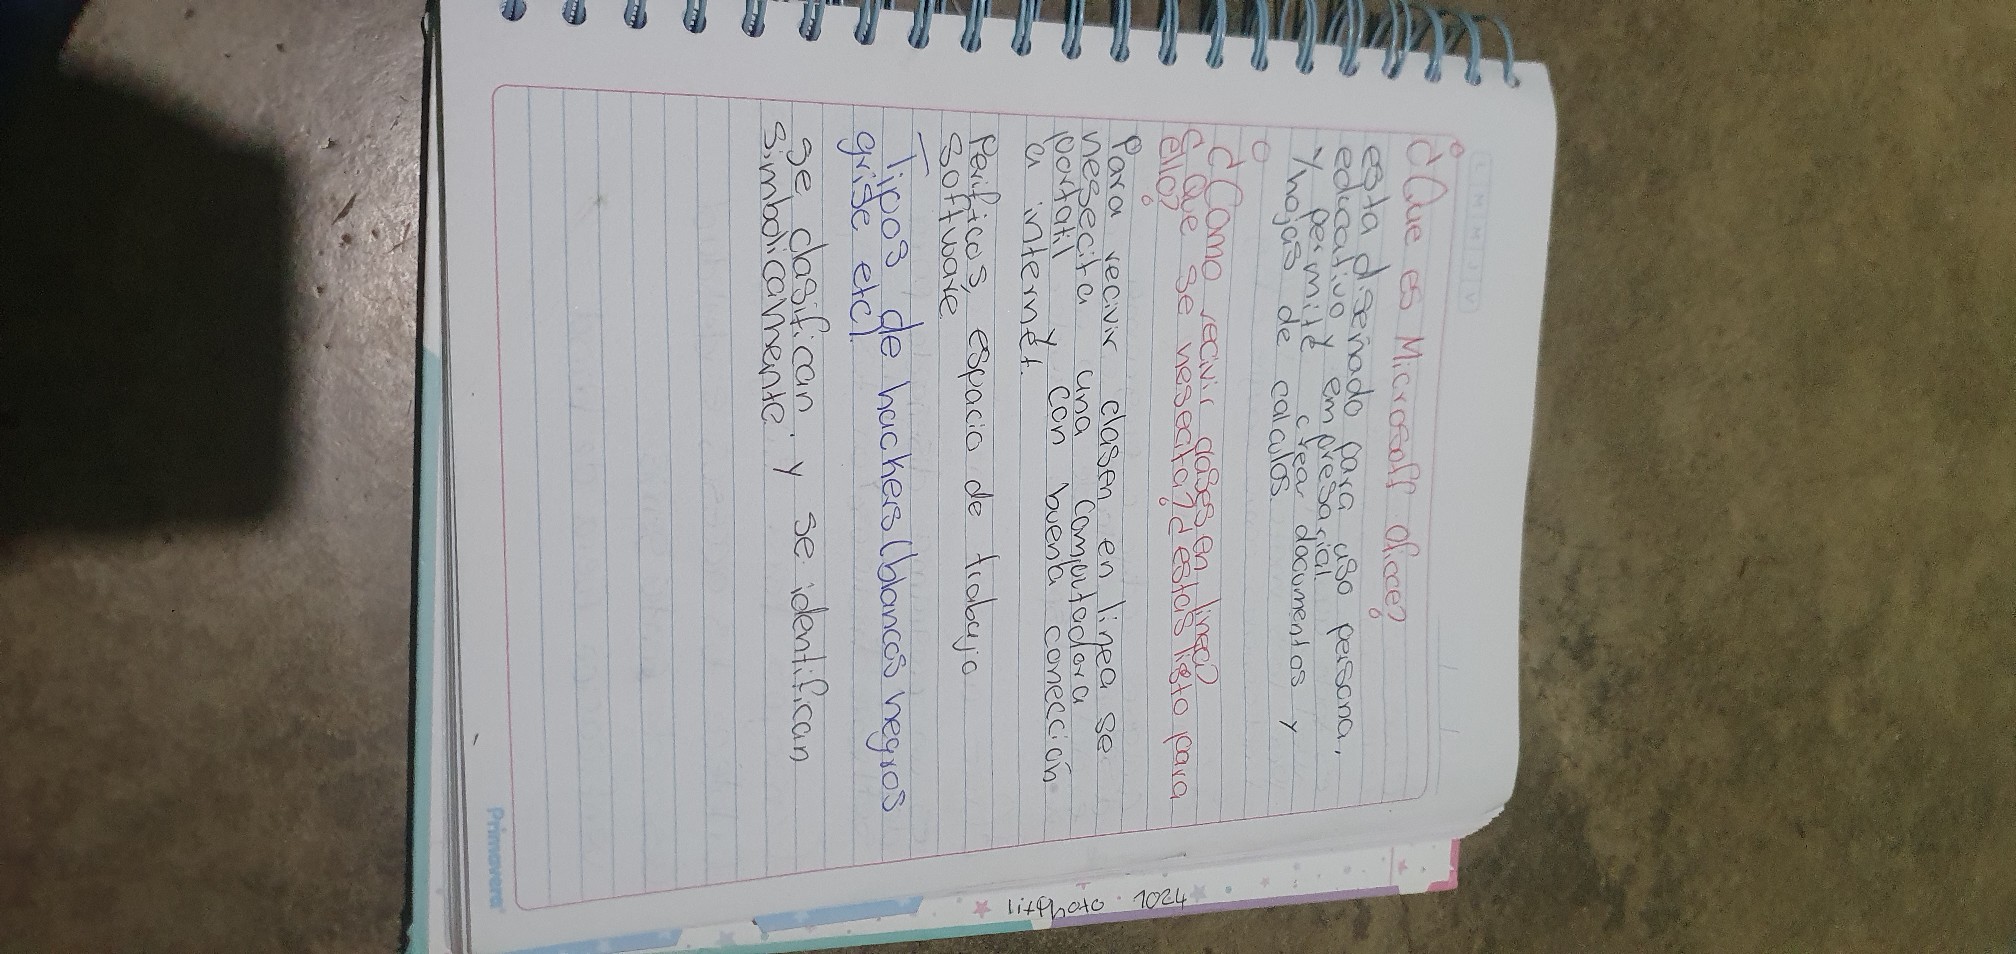 L M M J V
¿Que es Microsoff ofice?
esta diseñado para uso persona,
educativo y empresacial
y permite crear documentos y
y hojas de calculos.
¿Como recivir clases en linea?
¿Que se nesecita? ¿estas listo para
ello?
Para recivir clasen en linea se
nesecita una computadora
portatil y con buena conección
a internet.
Perificos, espacio de trabajo
software
Tipos de hackers (blancos negros
grise etc)
se clasifican y se identifican
simbolicamente
Primavera
1024